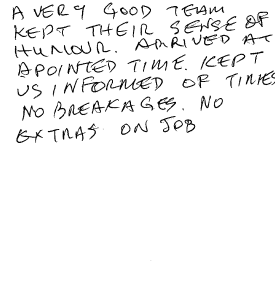 A VERY GOOD TEAM
KEPT THEIR SENSE OF
HUMOUR. ARRIVED AT
APOINTED TIME. KEPT
US INFORMED OF TIMES
NO BREAKAGES. NO
EXTRAS ON JOB